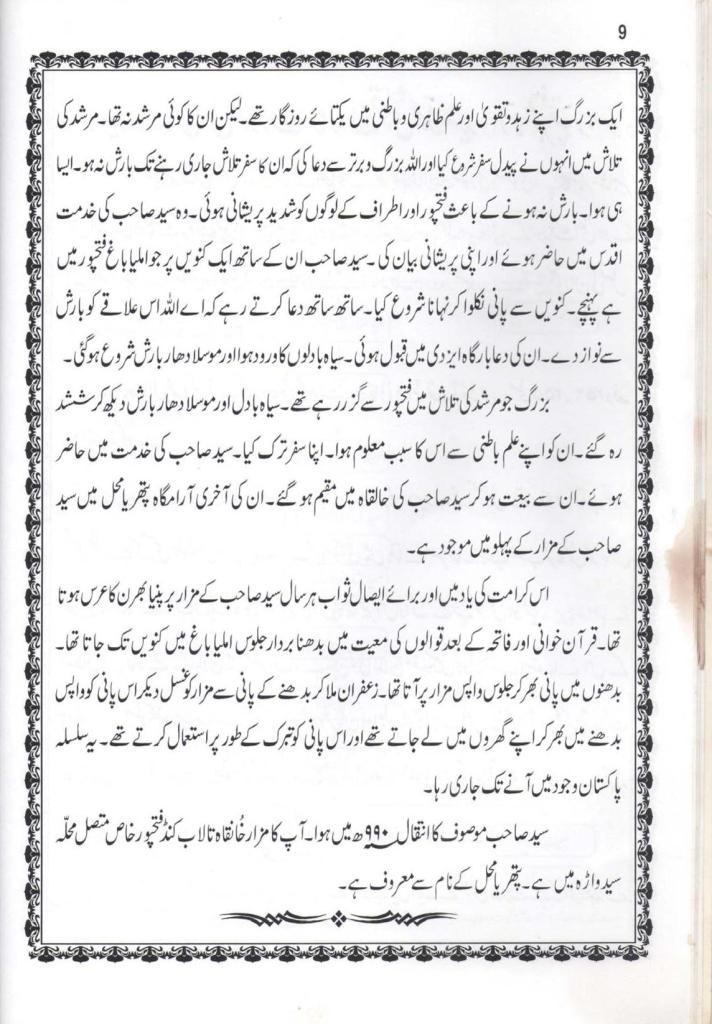 9
ایک بزرگ اپنے زہد و تقویٰ اور علم ظاہری و باطنی میں یکتائے روزگار تھے۔ لیکن ان کا کوئی مرشد نہ تھا۔ مرشد کی
تلاش میں انہوں نے پیدل سفر شروع کیا اور اللہ بزرگ و برتر سے دعا کی کہ ان کا سفر تلاش جاری رہنے تک بارش نہ ہو۔ ایسا
ہی ہوا۔ بارش نہ ہونے کے باعث فتحپور اور اطراف کے لوگوں کو شدید پریشانی ہوئی۔ وہ سید صاحب کی خدمت
اقدس میں حاضر ہوئے اور اپنی پریشانی بیان کی۔ سید صاحب ان کے ساتھ ایک کنویں پر جو املیا باغ فتحپور میں
ہے پہنچے۔ کنویں سے پانی نکلوا کر نہانا شروع کیا۔ ساتھ ساتھ دعا کرتے رہے کہ اے اللہ اس علاقے کو بارش
سے نواز دے۔ ان کی دعا بارگاہ ایزدی میں قبول ہوئی۔ سیاہ بادلوں کا ورود ہوا اور موسلا دھار بارش شروع ہوگئی۔
بزرگ جو مرشد کی تلاش میں فتحپور سے گزر رہے تھے۔ سیاہ بادل اور موسلا دھار بارش دیکھ کر ششدر
رہ گئے۔ ان کو اپنے علم باطنی سے اس کا سبب معلوم ہوا۔ اپنا سفر ترک کیا۔ سید صاحب کی خدمت میں حاضر
ہوئے۔ ان سے بیعت ہو کر سید صاحب کی خالقاہ میں مقیم ہو گئے۔ ان کی آخری آرامگاہ پتھریا محل میں سید
صاحب کے مزار کے پہلو میں موجود ہے۔
اس کرامت کی یاد میں اور برائے ایصال ثواب ہر سال سید صاحب کے مزار پر پنیا بھرن کا عرس ہوتا
تھا۔ قرآن خوانی اور فاتحہ کے بعد قوالوں کی معیت میں بدھنا بردار جلوس املیا باغ میں کنویں تک جاتا تھا۔
بدھنوں میں پانی بھر کر جلوس واپس مزار پر آتا تھا۔ زعفران ملا کر بدھنے کے پانی سے مزار کو غسل دیکر اس پانی کو واپس
بدھنے میں بھر کر اپنے گھروں میں لے جاتے تھے اور اس پانی کو تبرک کے طور پر استعمال کرتے تھے۔ یہ سلسلہ
پاکستان وجود میں آنے تک جاری رہا۔
سید صاحب موصوف کا انتقال ۹۹۰ھ میں ہوا۔ آپ کا مزار خانقاہ تالاب کنڈ فتحپور خاص متصل محلّہ
سید واڑہ میں ہے۔ پتھریا محل کے نام سے معروف ہے۔